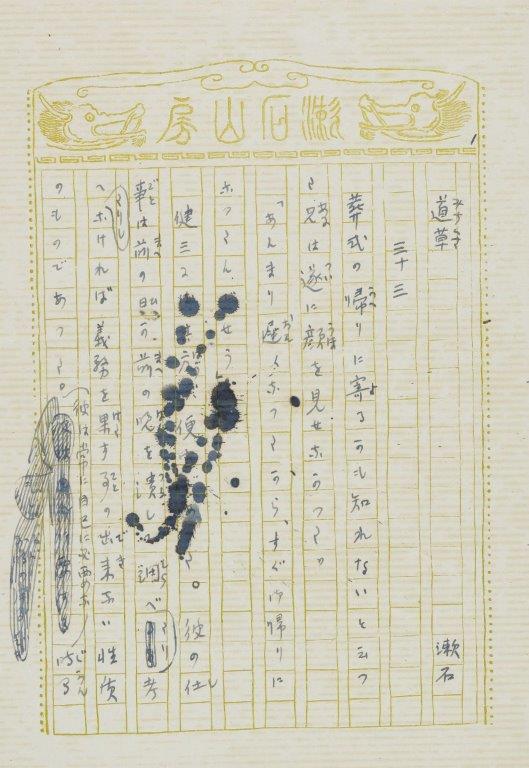 漱石山房
道草 漱石
三十三
葬式の帰りに寄るかも知れないと云つ
た兄は遂に顔を見せなかつた。
「あんまり遅くなつたから、すぐ御帰りに
なつたんでせう」
健三に 便 。彼の仕
事は前の 前の晩を潰して調べたり考
へなければ義務を果す事の出来ない性質
のものであつた。彼は常に自己に必要な 時間